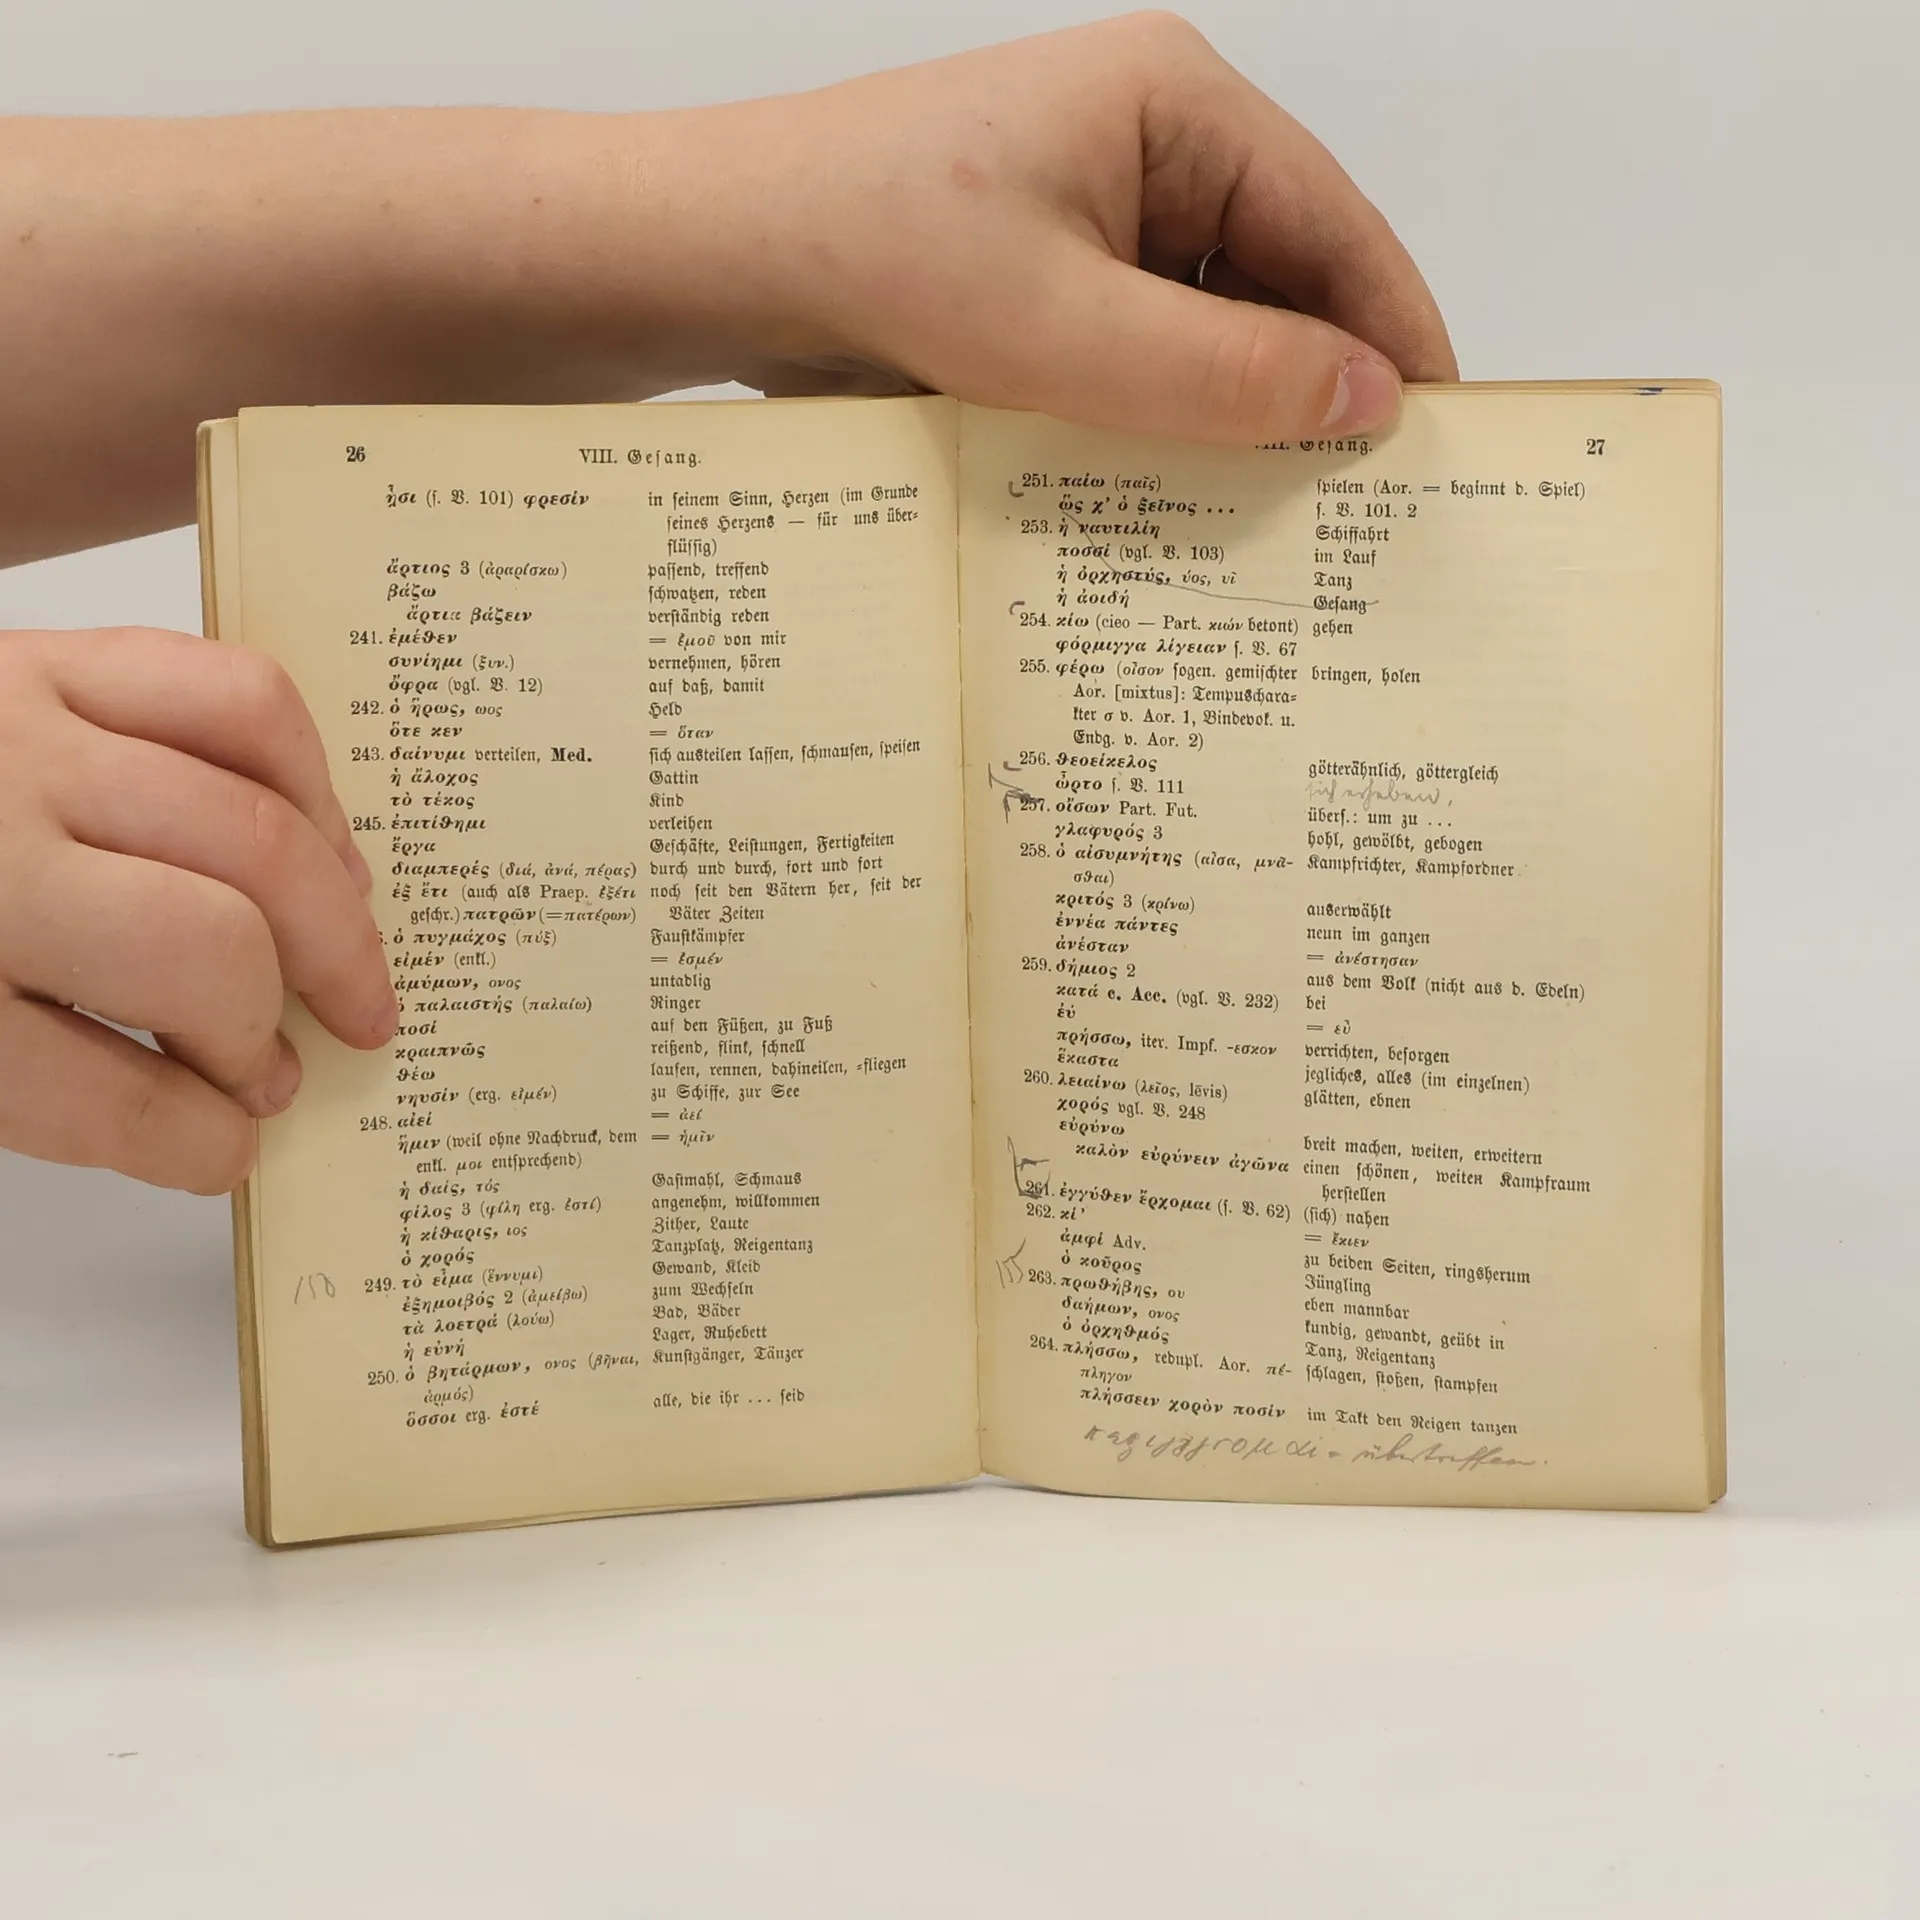 26
VIII. Gesang.
ᾗσι (s. V. 101) φρεσίν in seinem Sinn, Herzen (im Grunde
seines Herzens — für uns über-
flüssig)
ἄρτιος 3 (ἀραρίσκω) passend, treffend
βάζω schwatzen, reden
ἄρτια βάζειν verständig reden
241. ἐμέθεν = ἐμοῦ von mir
συνίημι (ξυν.) vernehmen, hören
ὄφρα (vgl. V. 12) auf daß, damit
242. ὁ ἥρως, ωος Held
ὅτε κεν = ὅταν
243. δαίνυμι verteilen, Med. sich austeilen lassen, schmausen, speisen
ἡ ἄλοχος Gattin
τὸ τέκος Kind
245. ἐπιτίθημι verleihen
ἔργα Geschäfte, Leistungen, Fertigkeiten
διαμπερές (διά, ἀνά, πέρας) durch und durch, fort und fort
ἐξ ἔτι (auch als Praep. ἐξέτι noch seit den Vätern her, seit der
geschr.) πατρῶν (=πατέρων) Väter Zeiten
6. ὁ πυγμάχος (πύξ) Faustkämpfer
εἰμέν (enkl.) = ἐσμέν
ἀμύμων, ονος untadlig
ὁ παλαιστής (παλαίω) Ringer
ποσί auf den Füßen, zu Fuß
κραιπνῶς reißend, flink, schnell
θέω laufen, rennen, dahineilen, -fliegen
νηυσίν (erg. εἰμέν) zu Schiffe, zur See
248. αἰεί = ἀεί
ἥμιν (weil ohne Nachdruck, dem = ἡμῖν
enkl. μοι entsprechend)
ἡ δαίς, τός Gastmahl, Schmaus
φίλος 3 (φίλη erg. ἐστί) angenehm, willkommen
ἡ κίθαρις, ιος Zither, Laute
ὁ χορός Tanzplatz, Reigentanz
249. τὸ εἷμα (ἕννυμι) Gewand, Kleid
ἐξημοιβός 2 (ἀμείβω) zum Wechseln
τὰ λοετρά (λούω) Bad, Bäder
ἡ εὐνή Lager, Ruhebett
250. ὁ βητάρμων, ονος (βῆναι, Kunstgänger, Tänzer
ἁρμός)
ὅσσοι erg. ἐστέ alle, die ihr ... seid
150
III. Gesang.
27
251. παίω (παῖς) spielen (Aor. = beginnt d. Spiel)
ὥς χ' ὁ ξεῖνος ... s. V. 101. 2
253. ἡ ναυτιλίη Schiffahrt
ποσσί (vgl. V. 103) im Lauf
ἡ ὀρχηστύς, ύος, υῖ Tanz
ἡ ἀοιδή Gesang
254. κίω (cieo — Part. κιών betont) gehen
φόρμιγγα λίγειαν s. V. 67
255. φέρω (οἶσον sogen. gemischter bringen, holen
Aor. [mixtus]: Tempuschara-
kter σ v. Aor. 1, Bindevok. u.
Endg. v. Aor. 2)
256. θεοείκελος götterähnlich, göttergleich
ὦρτο s. V. 111 sich erheben,
257. οἴσων Part. Fut. übers.: um zu ...
γλαφυρός 3 hohl, gewölbt, gebogen
258. ὁ αἰσυμνήτης (αἶσα, μνᾶ- Kampfrichter, Kampfordner
σθαι)
κριτός 3 (κρίνω) auserwählt
ἐννέα πάντες neun im ganzen
ἀνέσταν = ἀνέστησαν
259. δήμιος 2 aus dem Volk (nicht aus d. Edeln)
κατά c. Acc. (vgl. V. 232) bei
ἐύ = εὖ
πρήσσω, iter. Impf. -εσκον verrichten, besorgen
ἕκαστα jegliches, alles (im einzelnen)
260. λειαίνω (λεῖος, lēvis) glätten, ebnen
χορός vgl. V. 248
εὐρύνω breit machen, weiten, erweitern
καλὸν εὐρύνειν ἀγῶνα einen schönen, weiten Kampfraum
herstellen
261. ἐγγύθεν ἔρχομαι (s. V. 62) (sich) nahen
262. κί' = ἔκιεν
ἀμφί Adv. zu beiden Seiten, ringsherum
ὁ κοῦρος Jüngling
263. πρωθήβης, ου eben mannbar
δαήμων, ονος kundig, gewandt, geübt in
ὁ ὀρχηθμός Tanz, Reigentanz
264. πλήσσω, redupl. Aor. πέ- schlagen, stoßen, stampfen
πληγον
πλήσσειν χορὸν ποσίν im Takt den Reigen tanzen
155
= übertreffen.